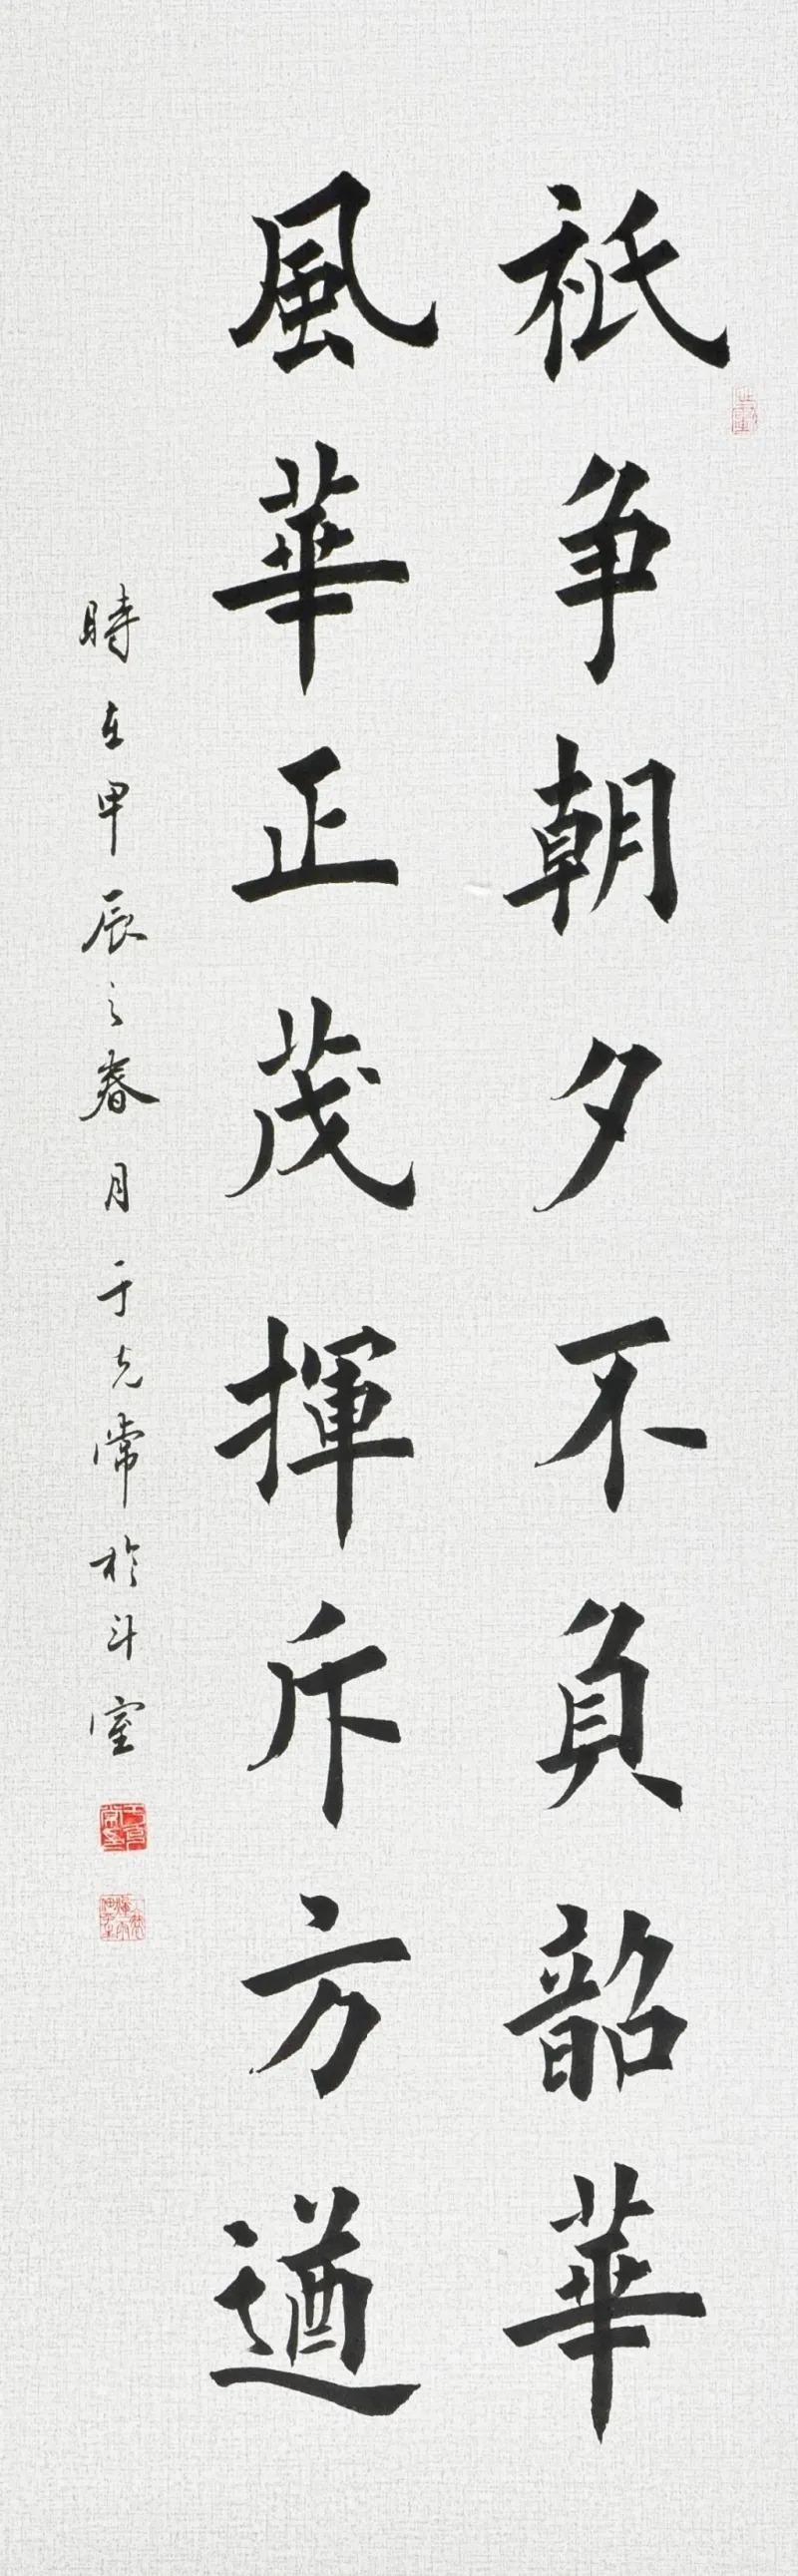 祇争朝夕不負韶華
風華正茂揮斥方遒
時在甲辰之春月于克常於斗室